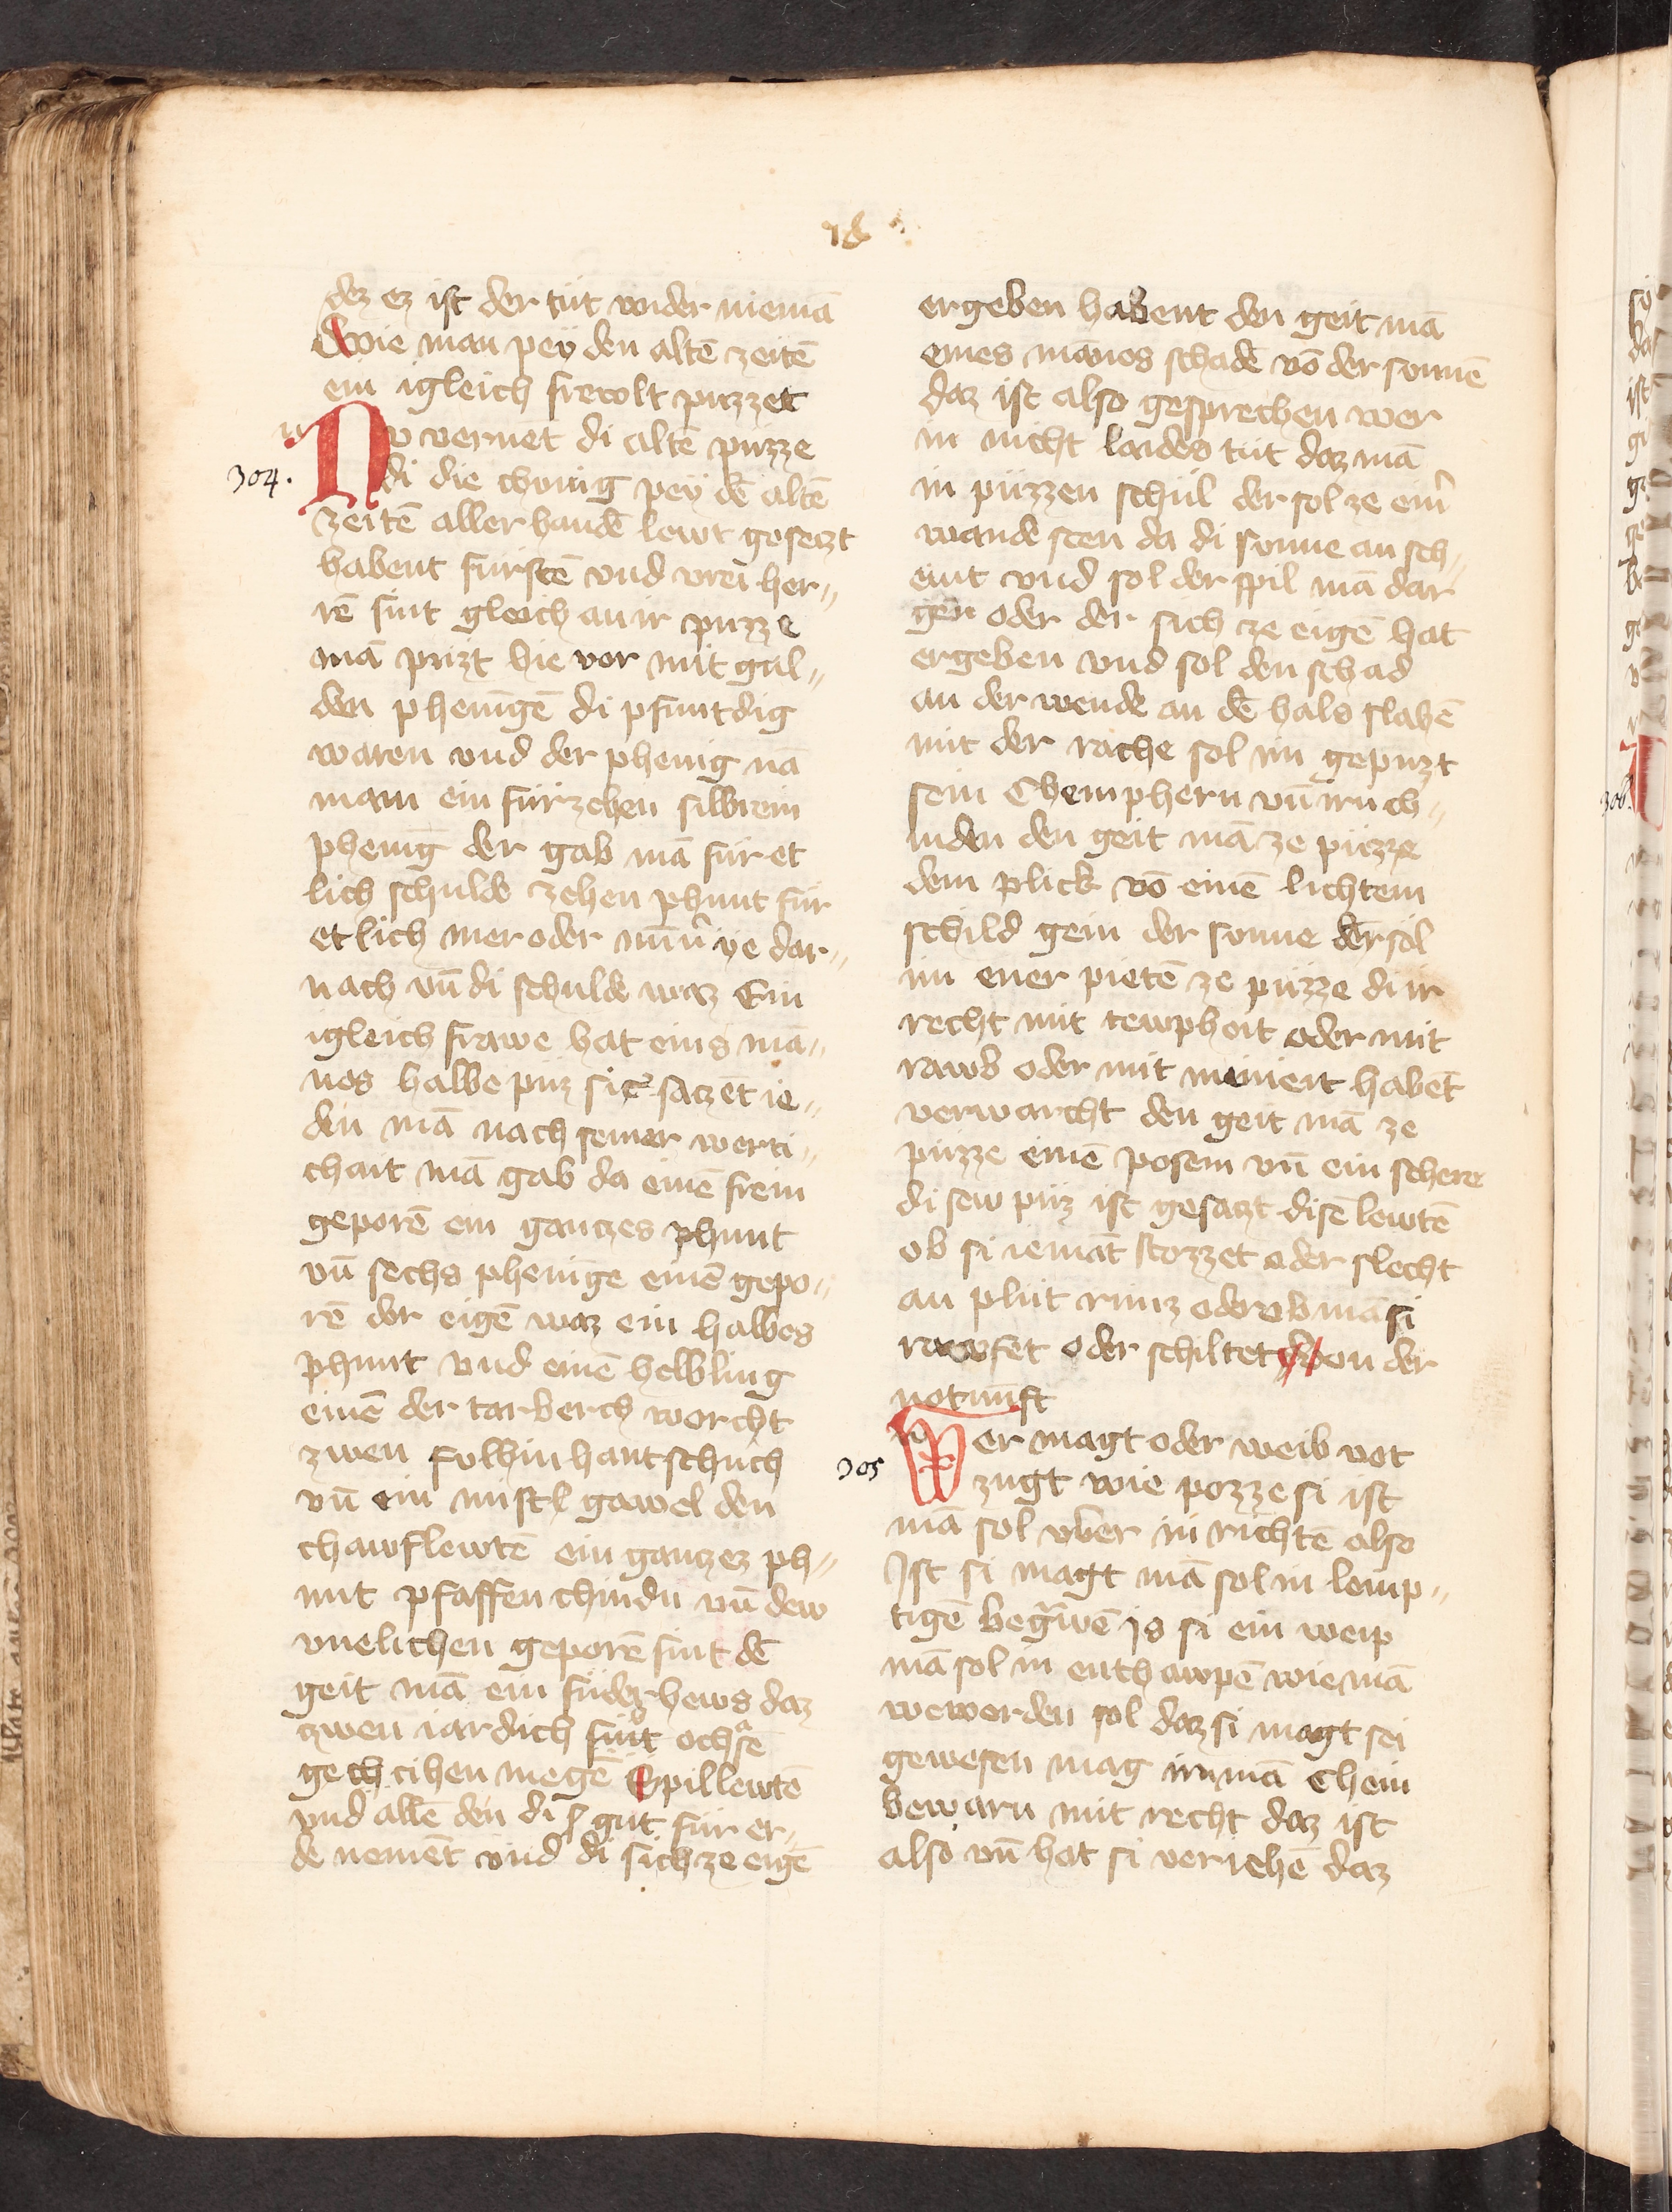 dez ez ist der tut wider niemā
Wie man pey den altē zeitē
ein igleich frevolt puzzet
304.
Nv vernet di altē puzze
di die chonig pey dē altē
zeitē aller handē lewt gesetzt
habent fürstē vnd vrei her„
rē sint gleich an ir puzze
mā puzt hie vor mit gul„
den phenīgē di pfuntdig
waren vnd der phenig nā
man ein für zehen silbrein
phenīg der gab mā für et
lich schulde zehen phunt für
etlich mer oder mīn̄ ye dar„
nach vn̄ di schulde waz Ein
igleich frawe hat eins mā„
nes halbe puz si saczēt ie„
den mā nach seiner werti„
chait mā gab da einē frein
geporē ein ganczes phunt
vn̄ sechs phenige einē gepo„
rē der eigē waz ein halbes
phunt vnd einē helbling
einē der tarberch worcht
zwen hantschuch
vn̄ ein mistl gawel den
chawflewtē ein gantzez ph„
unt pfaffen chindn vn̄ dew
vnelichen geporē sint dē
geit mā ein fuder hews daz
zwen iardich ochsē
gezcihen megē Spillewtē
vnd allē den di gut für er„
de nemēt vnd di sich ze eigē
ergeben habent den geit mā
eines mānes schadē vō der sonnē
daz ist also gesprechen wer
in nicht laides tut daz mā
in püzzen schul der sol ze ein̄
wande sten da di sonne an sch„
eint vnd sol der spil mā dar
gen oder der sich ze eigē hat
ergeben vnd sol den schad
an der wende an dē hals slahē
mit der rache sol im gepuzt
sein Chemphern vn̄ irn ch„
inden den geit mā ze püzze
dem plick vō einē lichtem
schild gein der sonne der sol
im ener pietē ze püzze di ir
recht mit tewpheit oder mit
rawb oder mit habēt
verwarcht den geit mā ze
puzze einē posem vn̄ ein schere
disew püz ist gesaczt disē lewtē
ob si iemāt stozzet oder slecht
an plut runs oder ob mā si
rawfet oder schiltet Von der
notnūft
305
Wer magt oder weib not
zugt wie pozze si ist
mā sol vber in richtē also
Ist si magt mā sol in lemp„
tigē begrawē Is si ein weip
mā sol in enthawpē wie mā
wewerden sol daz si magt sei
gewesen mag nimā Chein
bewarn mit recht daz ist
also vn̄ hat si veriehē daz